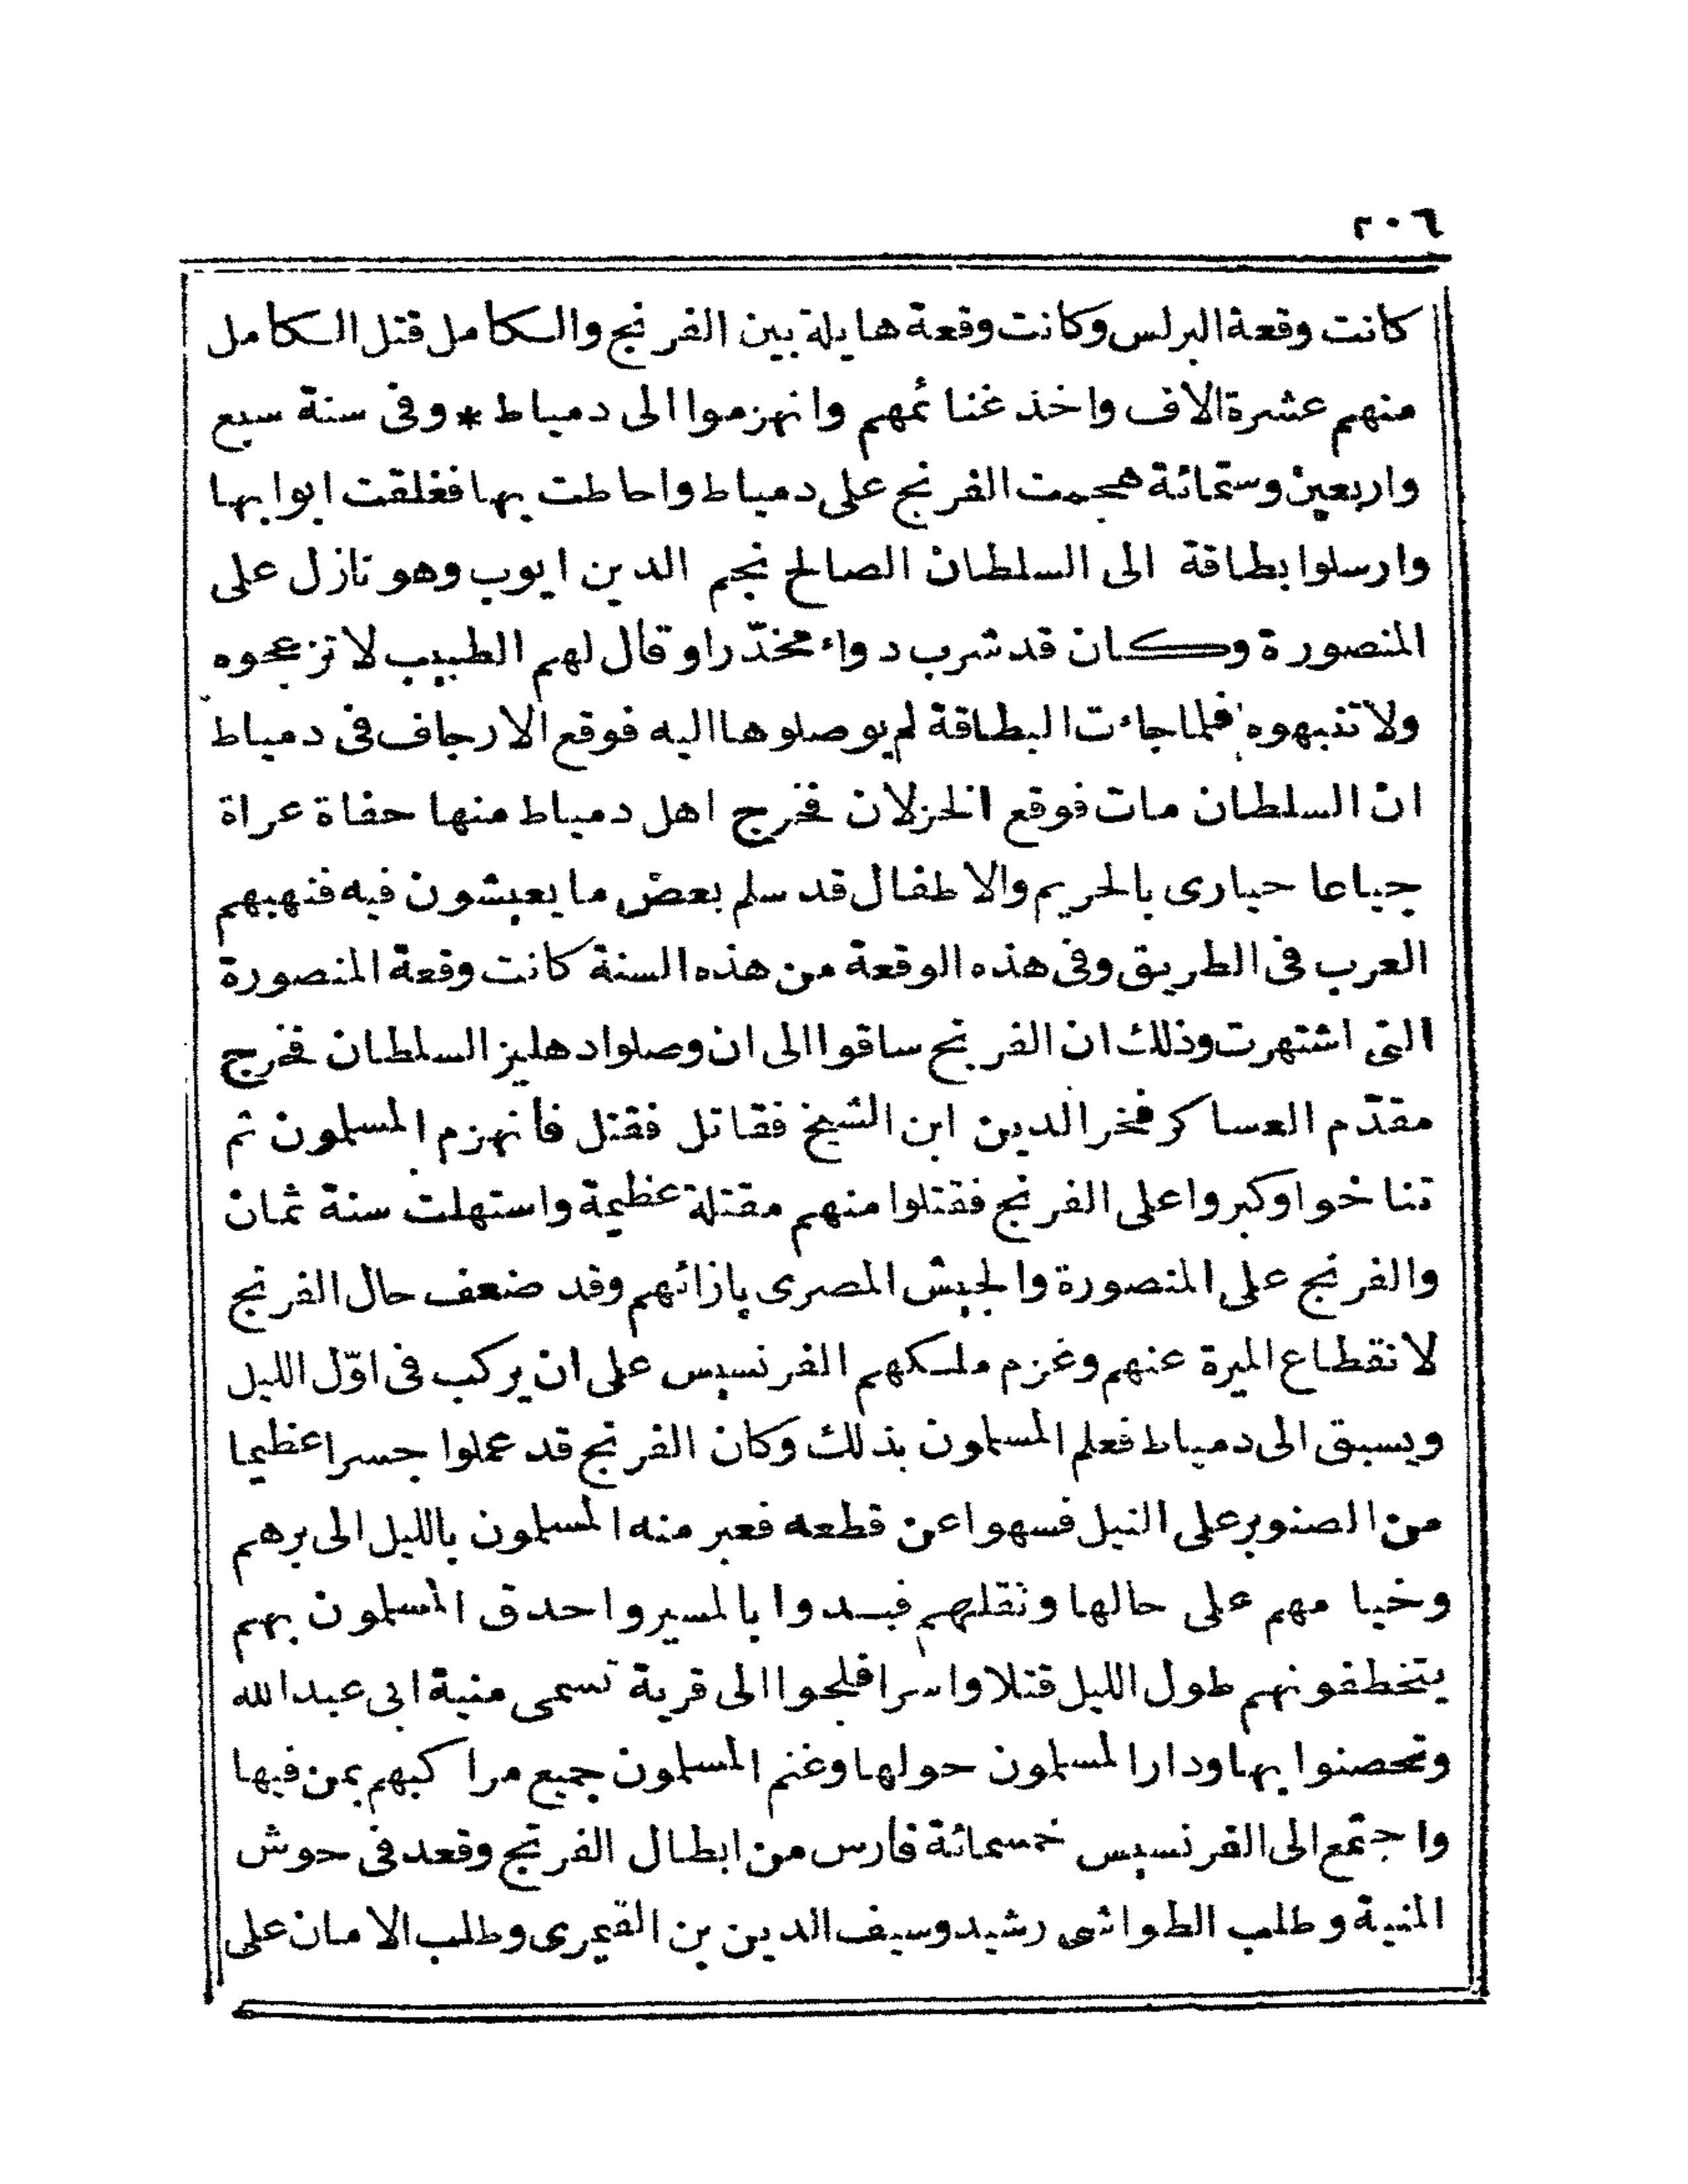 ٢٠٦
كانت وقعة البرلس وكانت وقعة هايلة بين الفرنج والكامل قتل الكامل
منهم عشرة الاف واخذ غنائمهم وانهزموا الى دمياط * وفى سنة سبع
واربعين وستمائة هجمت الفرنج على دمياط واحاطت بها فغلقت ابوابها
وارسلوا بطاقة الى السلطان الصالح نجم الدين ايوب وهو نازل على
المنصورة وكان قد شرب دواء مخدّرا وقال لهم الطبيب لا تزعجوه
ولا تنبهوه فلما جاءت البطاقة لم يوصلوها اليه فوقع الارجاف فى دمياط
ان السلطان مات فوقع الخزلان فخرج اهل دمياط منها حفاة عراة
جياعا حيارى بالحريم والاطفال قد سلم بعض ما يعيشون فيه فنهبهم
العرب فى الطريق وفى هذه الوقعة من هذه السنة كانت وقعة المنصورة
التى اشتهرت وذلك ان الفرنج ساقوا الى ان وصلوا دهليز السلطان فخرج
مقدّم العساكر فخر الدين ابن الشيخ فقاتل فقتل فانهزم المسلمون ثم
تناخوا وكبروا على الفرنج فقتلوا منهم مقتلة عظيمة واستهلت سنة ثمان
والفرنج على المنصورة والجيش المصرى بازائهم وقد ضعف حال الفرنج
لانقطاع الميرة عنهم وغزم ملكهم الفرنسيس على ان يركب فى اوّل الليل
ويسبق الى دمياط فعلم المسلمون بذلك وكان الفرنج قد عملوا جسرا عظيما
من الصنوبر على النيل فسهوا عن قطعه فعبر منه المسلمون بالليل الى برهم
وخيامهم على حالها ونقلهم فبدوا بالمسير واحدق المسلمون بهم
يتخطفونهم طول الليل قتلا واسرا فلجوا الى قرية تسمى منية ابى عبد الله
وتحصنوا بها ودار المسلمون حولها وغنم المسلمون جميع مراكبهم بمن فيها
واجتمع الى الفرنسيس خمسمائة فارس من ابطال الفرنج وقعد فى حوش
المنية وطلب الطواشى رشيد وسيف الدين بن القيمرى وطلب الامان على